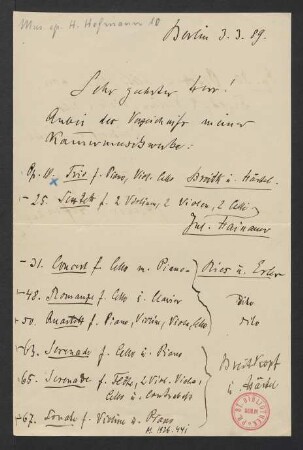 Mus. ep. H. Hofmann 10
Berlin 3. 3. 89.
Sehr geehrter Herr!
Anbei das Verzeichniß meiner
Kammermusikwerke:
Op. 18. Trio f. Piano, Viol. Cello Breitk. u. Härtel.
- 25. Sextett f. 2 Violinen, 2 Violen, 2 Celli.
Jul. Hainauer
- 31. Concert f. Cello m. Piano
Ries u. Erler
- 48. Romanze f. Cello u. Clavier
dito
- 50. Quartett f. Piano, Violin, Viola, Cello
dito
- 63. Serenade f. Cello u. Piano
Breitkopf
u. Härtel
- 65. Serenade f. Flöte, 2 Viol. Viola,
Cello u. Contrabaß
- 67. Sonate f. Violine u. Piano
M. 1926. 441
PR. ST. BIBLIOTHEK
BERLIN